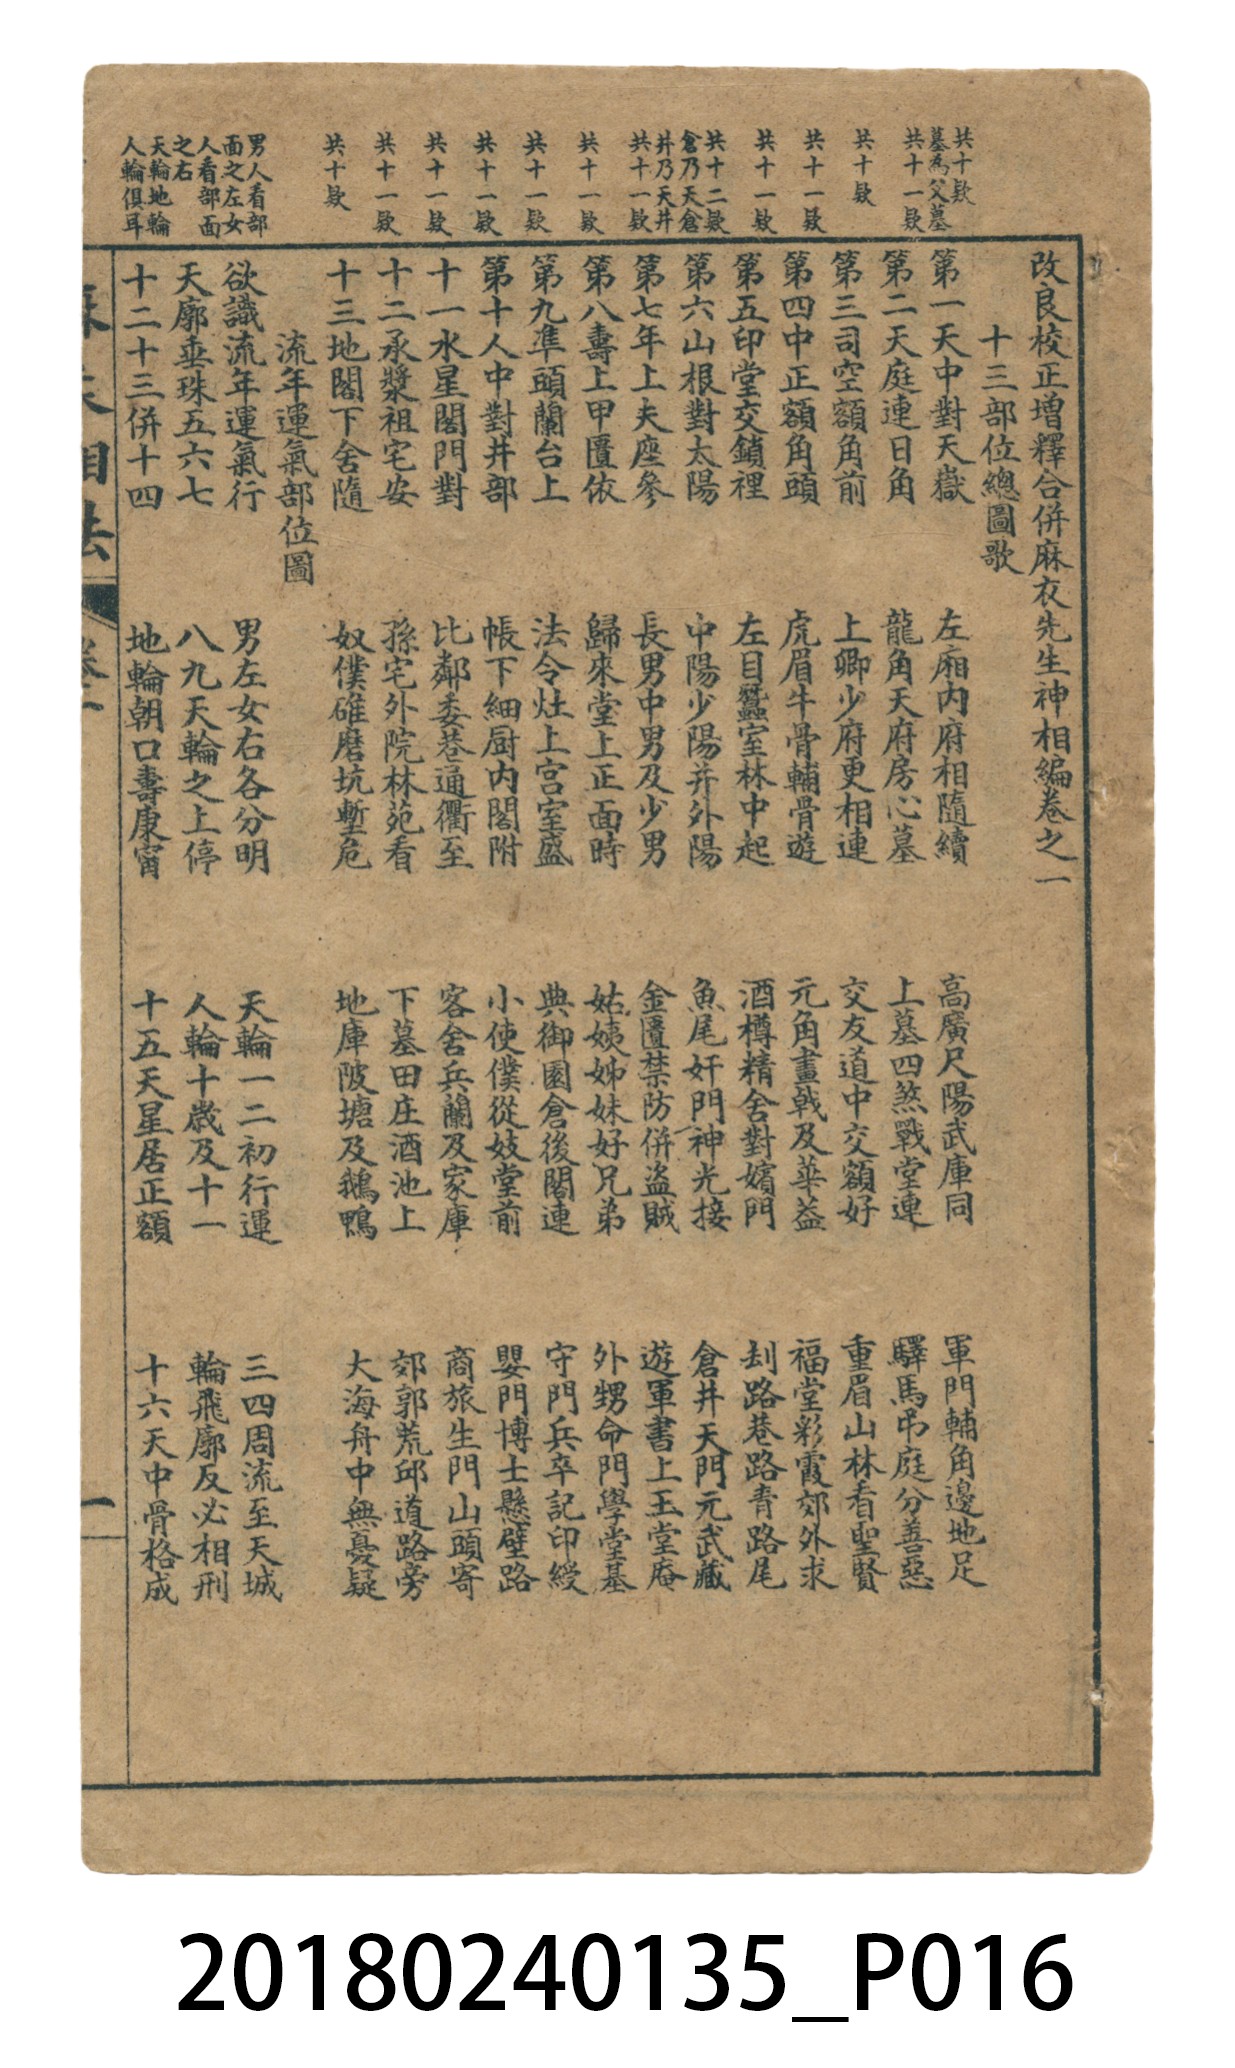 共十欵
墓爲父墓
共十一欵
共十欵
共十一欵
共十一欵
共十二欵
倉乃天倉
井乃天井
共十一欵
共十一欵
共十一欵
共十一欵
共十一欵
共十一欵
共十欵
男人看部
面之左女
人看部面
之右
天輪地輪
人輪俱耳
改良校正增釋合併麻衣先生神相編卷之一
十三部位總圖歌
第一天中對天嶽 左廂內府相隨續 高廣尺陽武庫同 軍門輔角邊地足
第二天庭連日角 龍角天府房心墓 上墓四煞戰堂連 驛馬吊庭分善惡
第三司空額角前 上卿少府更相連 交友道中交額好 重眉山林看聖賢
第四中正額角頭 虎眉牛骨輔骨遊 元角畫戟及華蓋 福堂彩霞郊外求
第五印堂交鎖裡 左目蠶室林中起 酒樽精舍對嬪門 刦路巷路青路尾
第六山根對太陽 中陽少陽并外陽 魚尾奸門神光接 倉井天門元武藏
第七年上夫座參 長男中男及少男 金匱禁防併盜賊 遊軍書上玉堂庵
第八壽上甲匱依 歸來堂上正面時 姑姨姊妹好兄弟 外甥命門學堂基
第九準頭蘭台上 法令灶上宮室盛 典御園倉後閣連 守門兵卒記印綬
第十人中對井部 帳下細厨內閣附 小使僕從妓堂前 嬰門博士懸壁路
十一水星閣門對 比鄰委巷通衢至 客舍兵蘭及家庫 商旅生門山頭寄
十二承漿祖宅安 孫宅外院林苑看 下墓田庄酒池上 郊郭荒邱道路旁
十三地閣下舍隨 奴僕碓磨坑塹危 地庫陂塘及鵝鴨 大海舟中無憂疑
流年運氣部位圖
欲識流年運氣行 男左女右各分明 天輪一二初行運 三四周流至天城
天廓垂珠五六七 八九天輪之上停 人輪十歲及十一 輪飛廓反必相刑
十二十三併十四 地輪朝口壽康甯 十五天星居正額 十六天中骨格成
麻衣相法 卷一 一
20180240135_P016